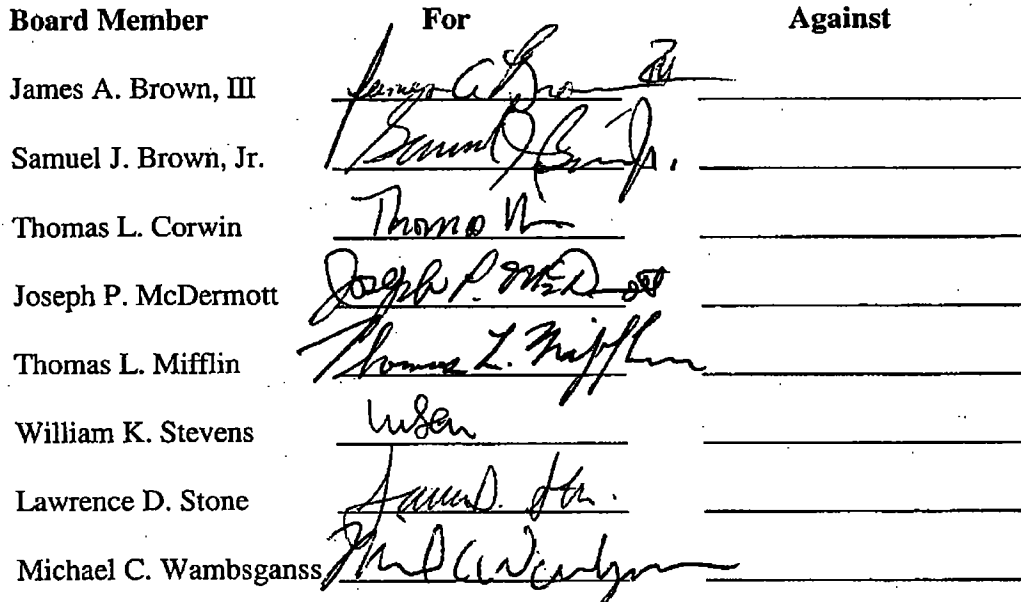 Board Member For Against
James A. Brown, III James A Brown III
Samuel J. Brown, Jr. Samuel J Brown Jr.
Thomas L. Corwin Thomas
Joseph P. McDermott Joseph P. McDermott
Thomas L. Mifflin Thomas L. Mifflin
William K. Stevens
Lawrence D. Stone
Michael C. Wambsganss